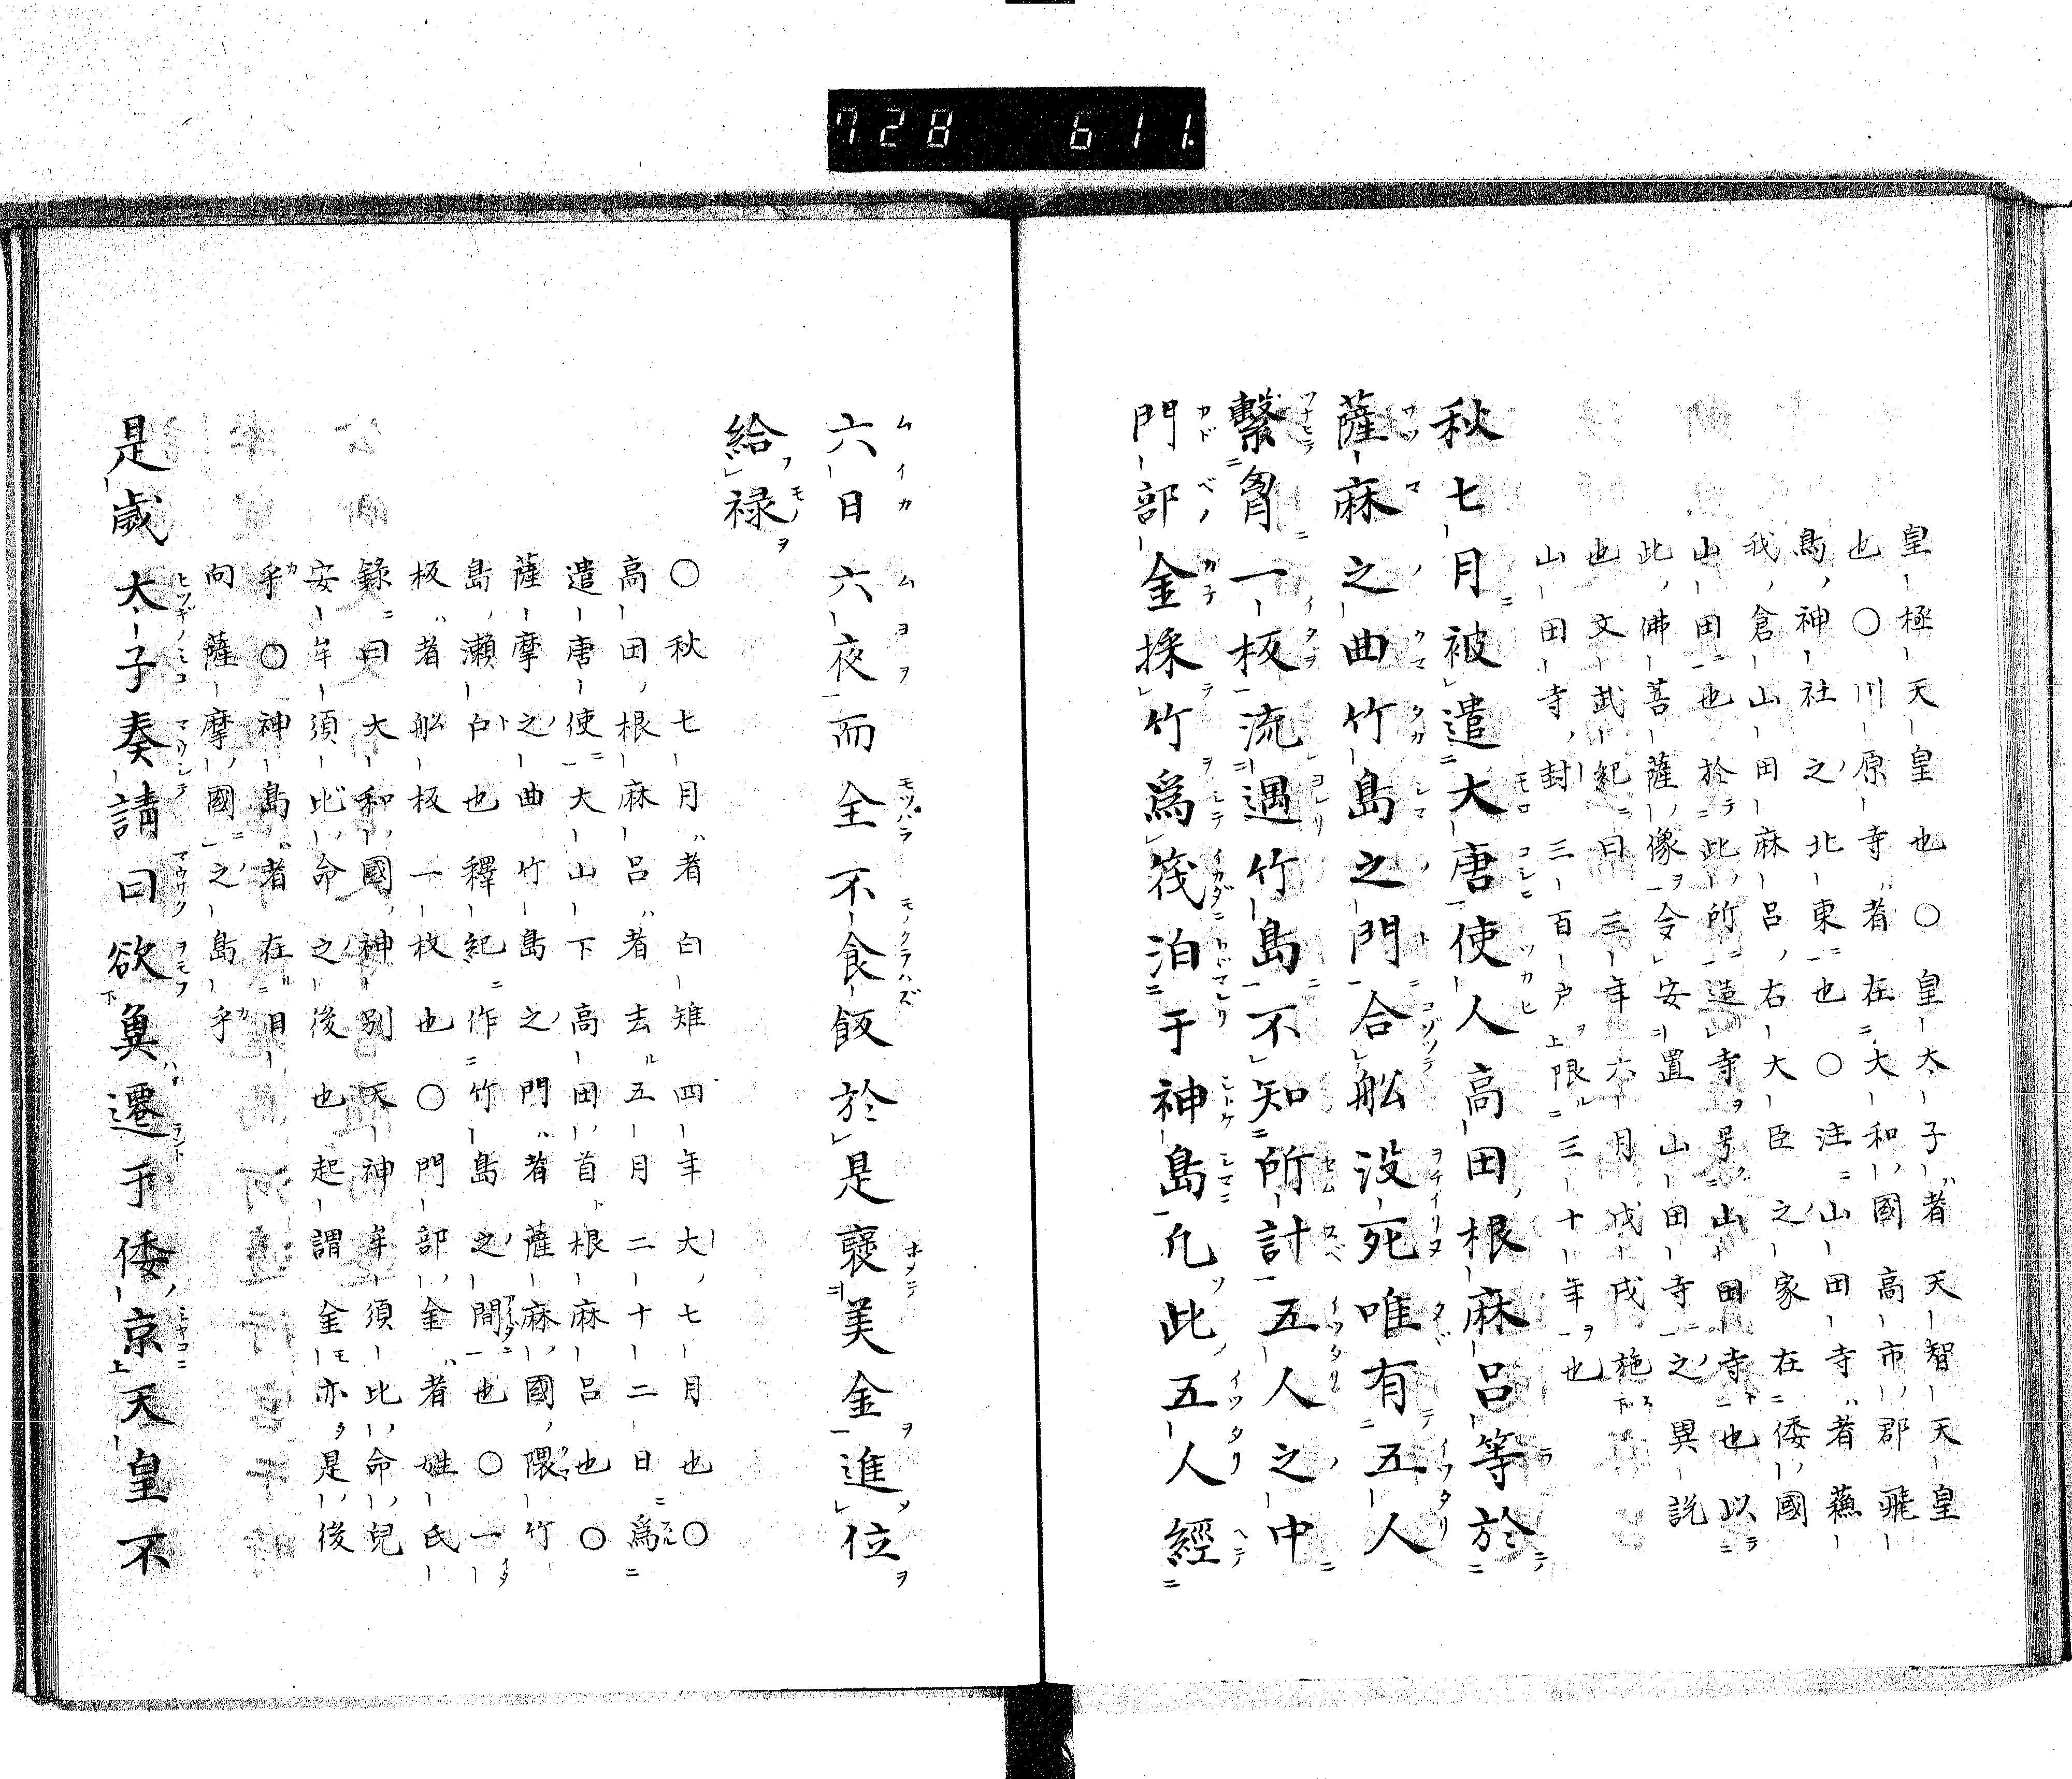 728 611.
皇極天皇也〇皇太子者天智天皇
也〇川原寺者在大和國高市郡飛
鳥神社之北東也〇注山田寺者蘓
我倉山田麻呂右大臣之家在倭國
山田也於此所造寺号山田寺也以
此佛菩薩像令安置山田寺之異説
也文武紀曰三年六月戊戌施
山田寺封三百戸限三十年也
秋七月被遣大唐使人高田根麻呂等於
薩麻之曲竹島之門合舩没死唯有五人
繫胷一板流遇竹島不知所計五人之中
門部金採竹爲筏泊于神島凢此五人經
六日六夜而全不食飯於是襃美金進位
給禄
〇秋七月者白雉四年大七月也〇
高田根麻呂者去五月二十二日爲
遣唐使大山下高田首根麻呂也〇
薩摩之曲竹島之門者薩麻國隈竹
島瀬戸也釋紀作竹島之間也〇一
板者舩板一枚也〇門部金者姓氏
錄曰大和國神別天神牟須比命兒
安牟須比命之後也起謂金亦是後
乎〇神島者在日
向薩摩國之島乎
是歲太子奏請曰欲兾遷于倭京天皇不